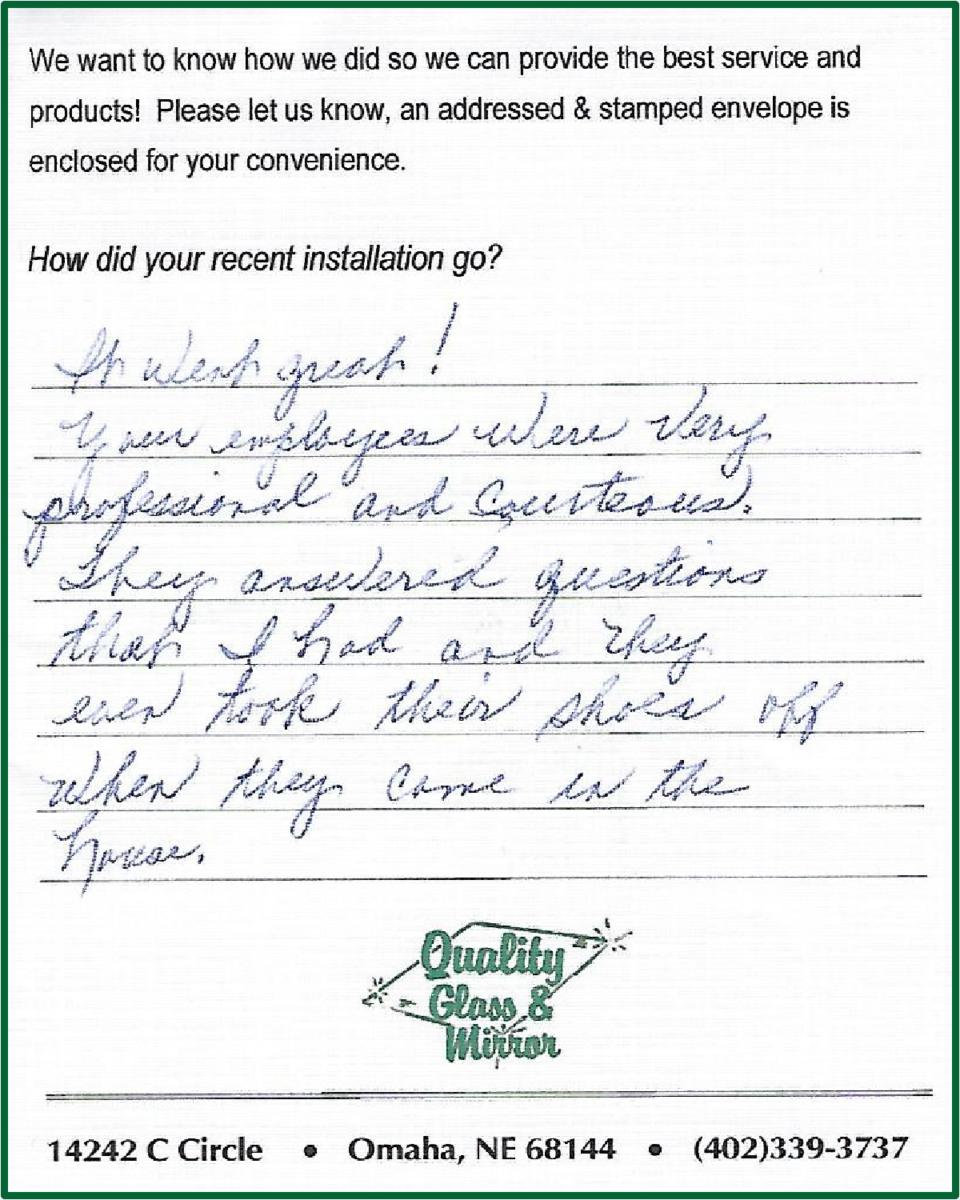 We want to know how we did so we can provide the best service and
products! Please let us know, an addressed & stamped envelope is
enclosed for your convenience.
How did your recent installation go?
It went great!
Your employees were very
professional and courteous.
They answered questions
that I had and they
even took their shoes off
when they came in the
house.
Quality
Glass &
Mirror
14242 C Circle • Omaha, NE 68144 • (402)339-3737